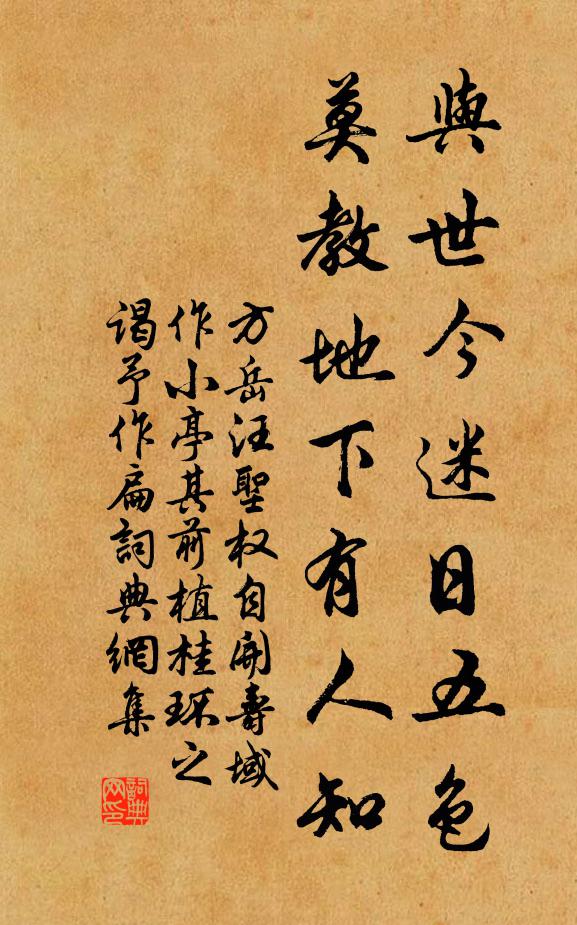 與世今迷日五色
莫教地下有人知
方岳汪聖权自開壽域
作小亭其前植桂環之
谒予作扁詞典網集
詞典网印